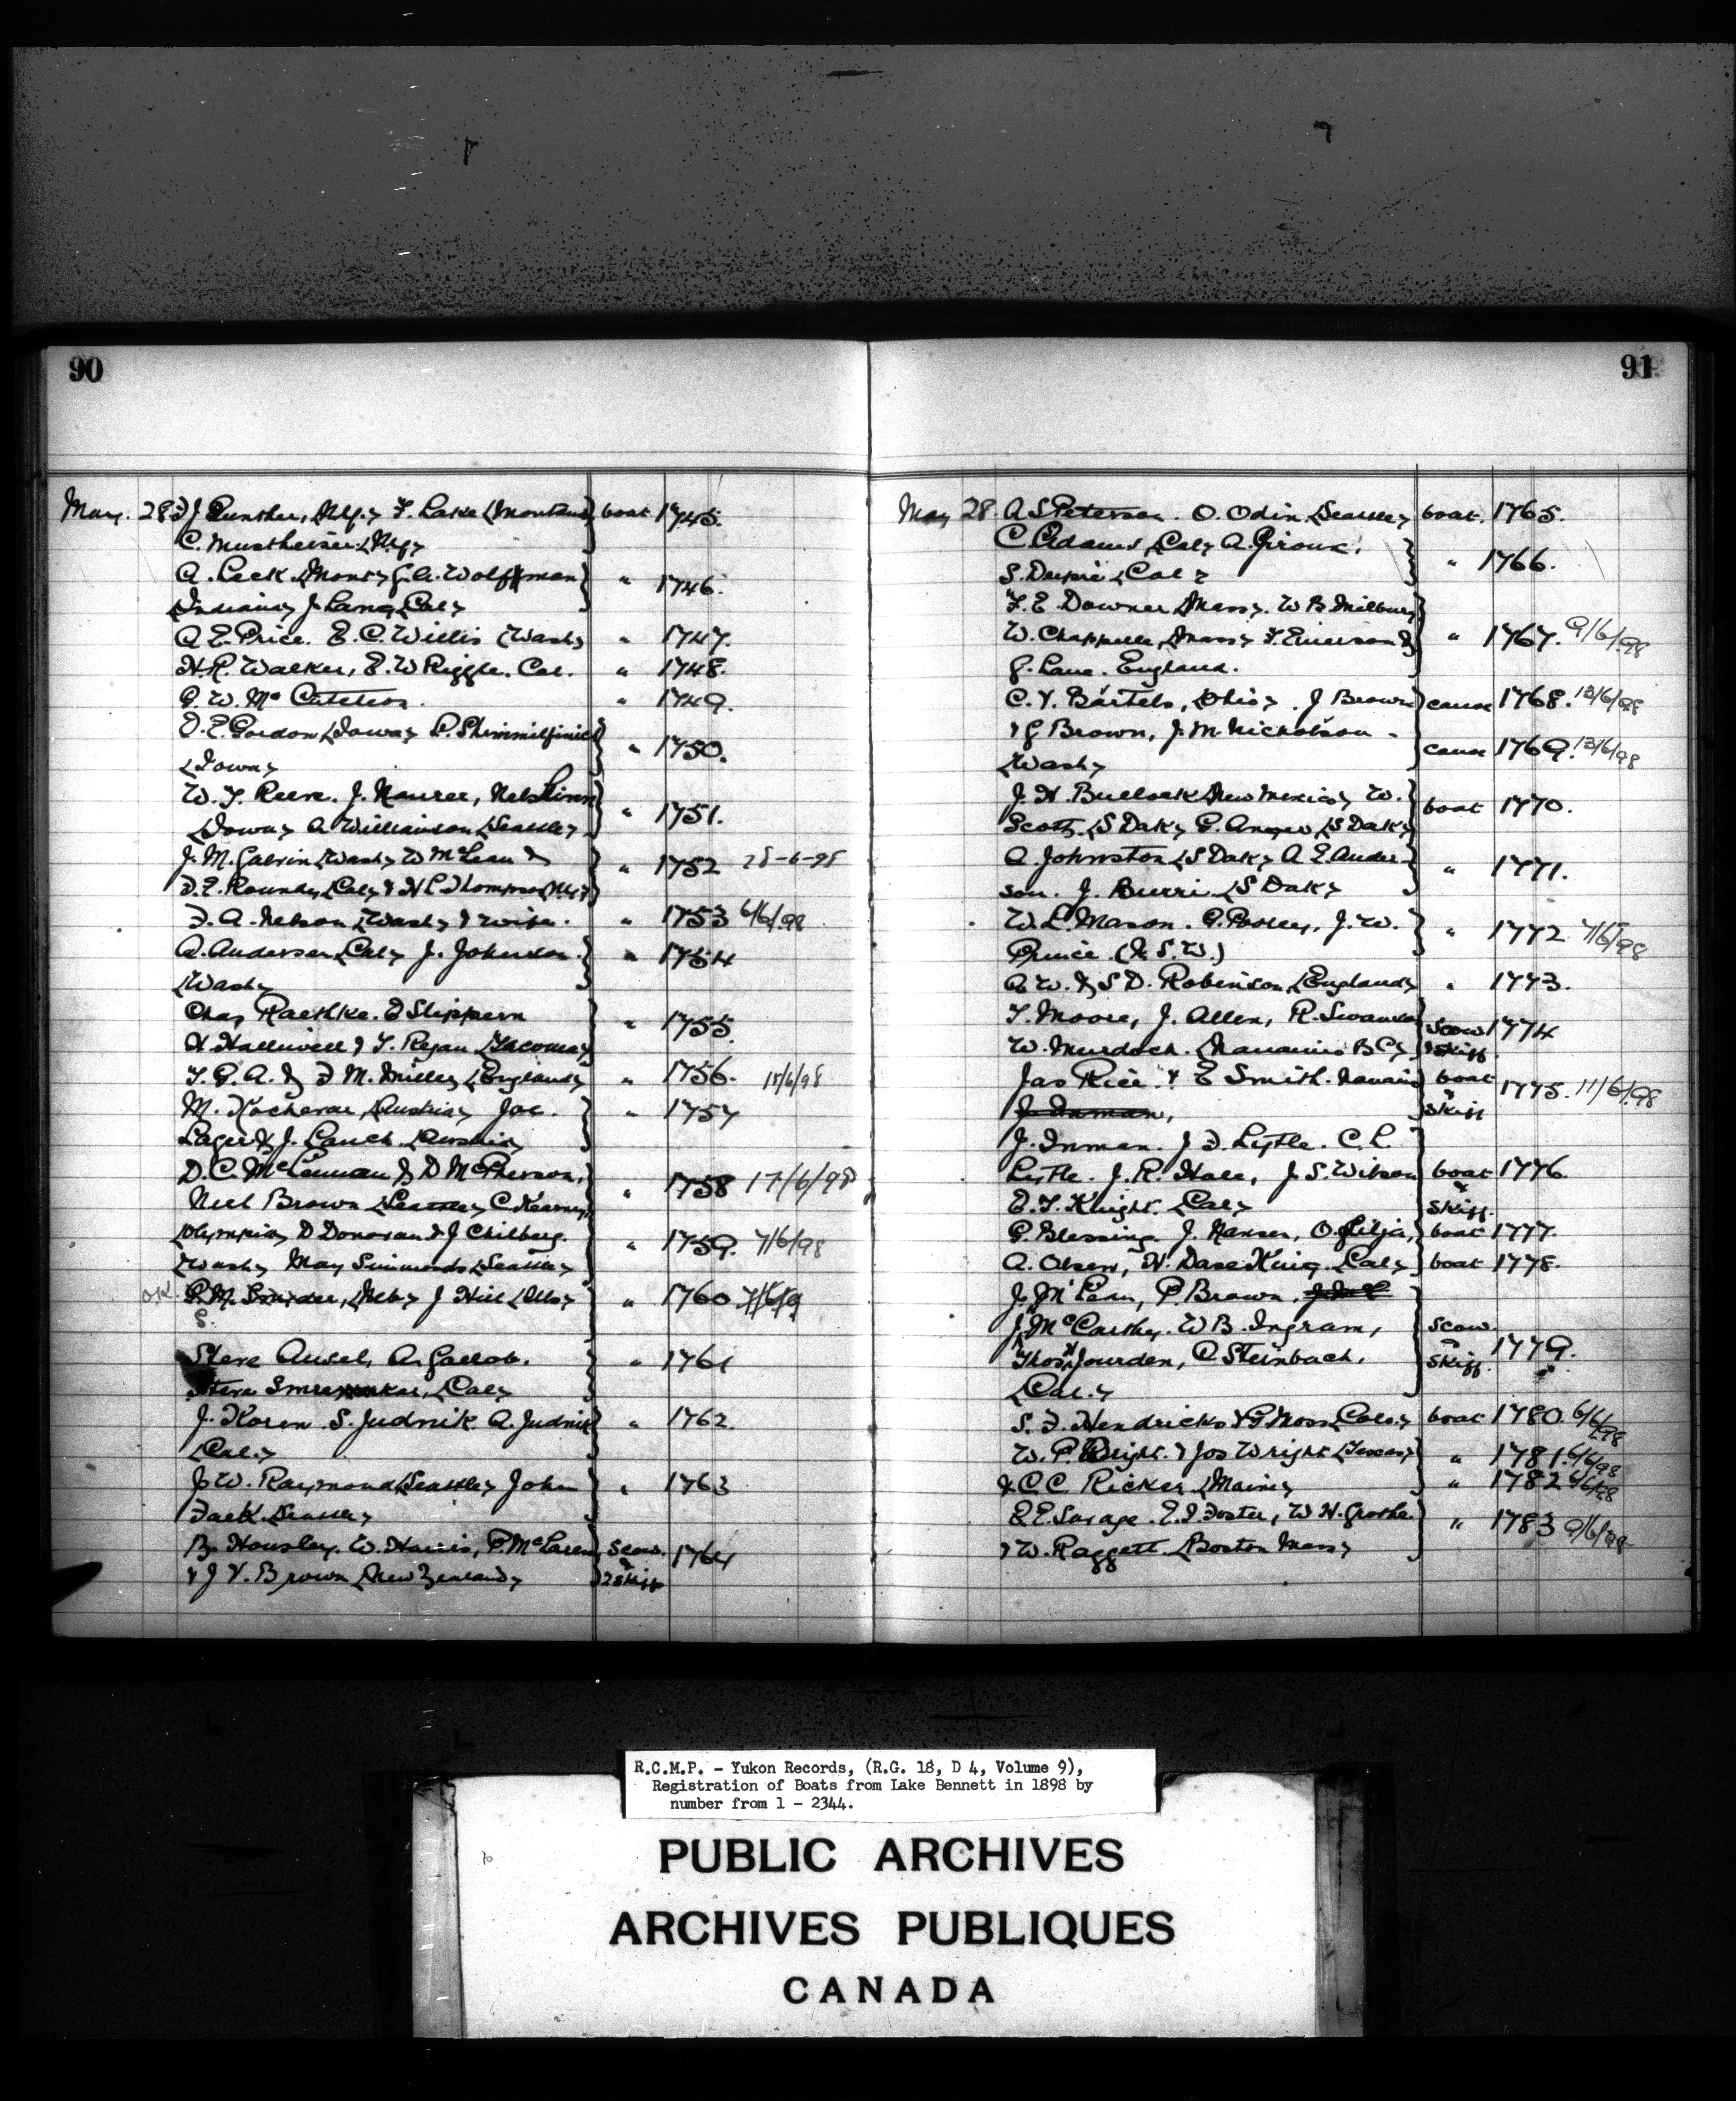 90
May. 28 F J Gunther, N.Y. T. Lake (Montana) boat 1745.
C. (N.Y.)
A. Leck. (Mont) G.A. Wolffman " 1746.
(Indiana) J. Lang (Cal)
A. E. Price. E. C. Willis (Wash) " 1747.
H. R. Walker, E. W Riggle. Cal. " 1748.
G. W. Mc Cutcheon. " 1749.
O. E. Gordon (Iowa) " 1750.
(Iowa)
W. T. Reeve. J. Maurer, Nels Linn " 1751.
(Iowa) A. Williamson (Seattle)
J. M. Galvin (Wash) W McLean & " 1752 28-6-98
F. E. Roundy (Cal) & H L Thompson (N.Y.)
F. A. Nelson (Wash) & wife. " 1753 6/6/98
A. Anderson (Cal) J. Johnson. " 1754
(Wash)
Chas Raethke. E Slippern " 1755.
H. Halliwell & T. Regan (Tacoma)
T. G. A. & F M. Miller (England) " 1756. 15/6/98
M. Kochevar (Austria) Joe. " 1757
Lager & J. Lauch (Austria)
D. C. McLennan & D McPherson, " 1758 17/6/98
Neil Brown (Seattle) C. Kearney,
(Olympia) D Donovan & J Chilberg. " 1759. 7/6/98
(Wash) May Simmonds (Seattle)
O.K. P. M. Snyder, (Neb) J Hill (Ills) " 1760 7/6/9
S.
Steve Ausel, A. Gallob. " 1761
Steve (Cal)
J. Koren S. Judnik A. Judnik " 1762.
(Cal.)
J. W. Raymond (Seattle) John " 1763
Jack (Seattle)
B. Housley. W. Harris, P. McLaren, Scow. & 1764
& J V. Brown (New Zealand) 2 skiff
91
May 28. A. S Peterson. O. Odin (Seattle) boat. 1765.
C. Adams (Cal) A. Giroux, " 1766.
S. Dupie (Cal)
T. E. Downer (Mass). W B. Milbury
W. Chappelle (Mass) T. Emerson & " 1767. 9/6/98
G. Lane. England.
C. V. Bartels, (Ohio). J Brown canoe 1768. 13/6/98
& G Brown, J. M. Nicholson - canoe 1769. 13/6/98
(Wash)
J. H. Bullock (New Mexico) W. boat 1770.
Scott (S Dak) G. Anger (S Dak)
A. Johnston (S Dak) A E. Ander- " 1771.
son. J. Burri (S Dak)
W. L. Mason. G. Pooley. J. W. " 1772 7/6/98
Prince (N. S. W.)
A W. & S D. Robinson (England) " 1773.
T. Moore, J. Allen, R. Swanson Scow 1774
W. Murdoch. (Nanaimo B C) & skiff.
Jas Rice. & E Smith. Nanaimo boat & 1775. 11/6/98
J. Inman, skiff
J. Inman. J F. Lytle. C. L.
Lytle. J. R. Hall, J. S. Wilson boat 1776.
E. T. Knight. (Cal) & skiff.
G. Blessing. J. Hansen, O. Lilja, boat 1777.
A. Olsen, H. Dase King. (Cal) boat 1778.
J. McLean, P. Brown.
J. McCarthy. W B. Ingram, scow. &
Thos H Jourden, C Steinbach. skiff. 1779.
(Cal.)
S. F. Hendricks & G Moss (Colo.) boat 1780. 6/6/98
W. P. Wright. & Jos Wright (Texas) " 1781. 6/6/98
& C C. Ricker (Maine) " 1782 6/6/98
E E. Savage. E. I. Foster, W H. Grothe. " 1783 9/6/98
& W. Raggett. (Boston Mass)
R.C.M.P. - Yukon Records, (R.G. 18, D 4, Volume 9),
Registration of Boats from Lake Bennett in 1898 by
number from 1 - 2344.
PUBLIC ARCHIVES
ARCHIVES PUBLIQUES
CANADA